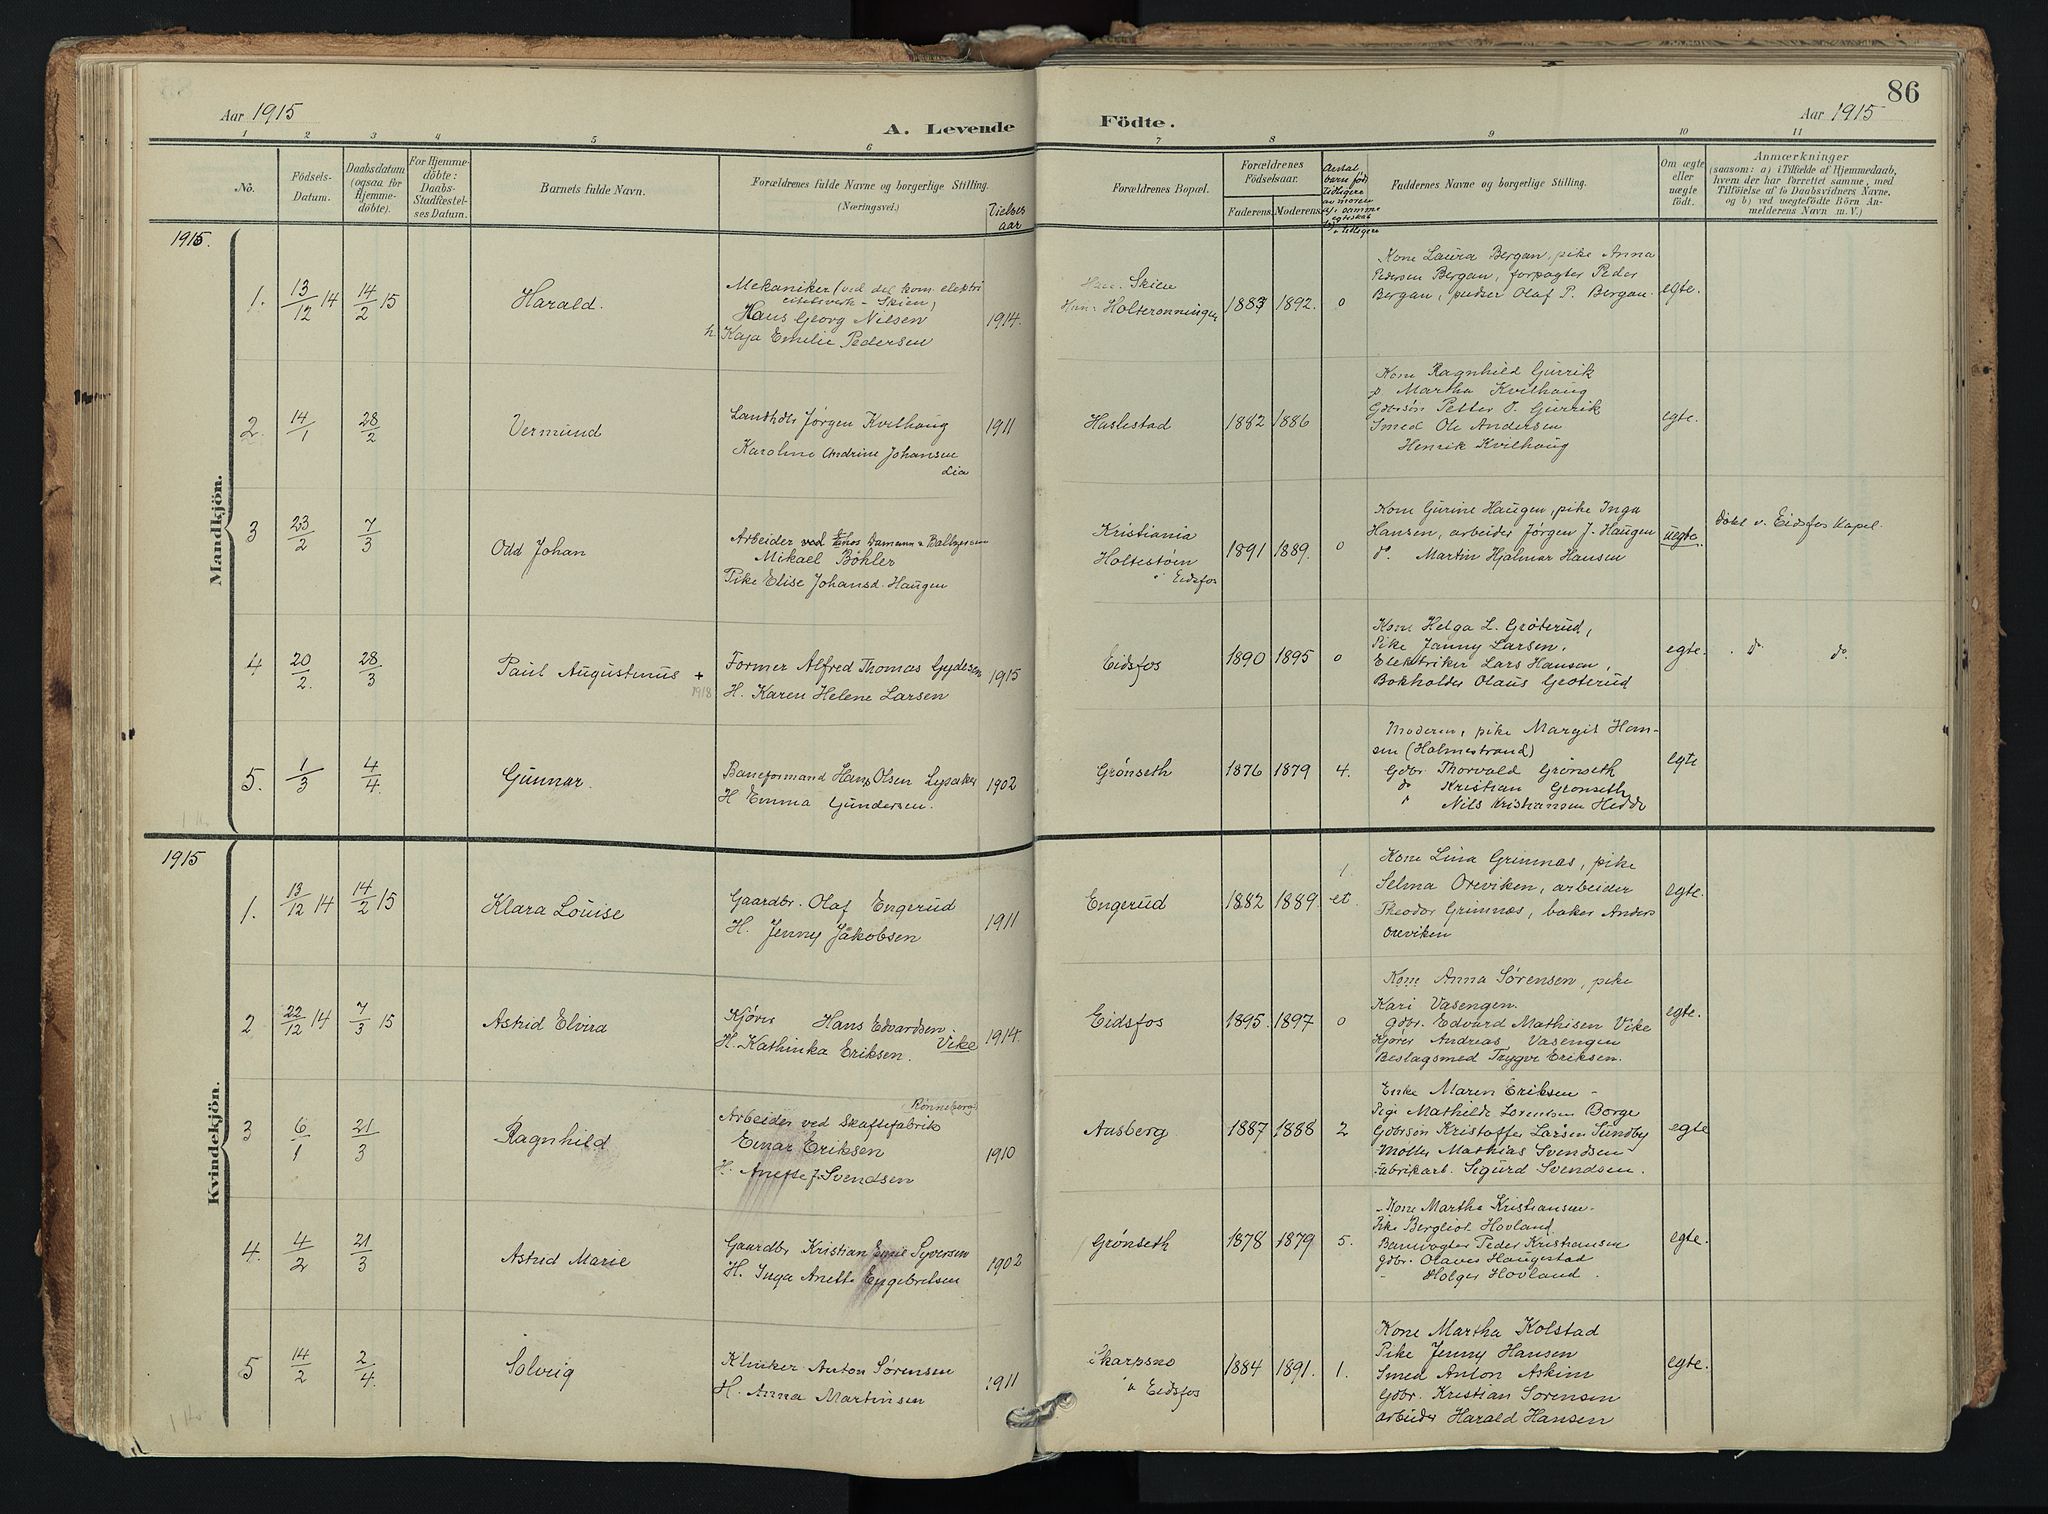 86
Aar 1915
A. Levende Födte.
Aar 1915
1 2 3 4 5 6 7 8 9 10 11
No.
Födsels-
Datum.
Daabsdatum
(ogsaa for
Hjemme-
döbte).
For Hjemme-
döbte:
Daabs-
Stadfæstel-
ses Datum.
Barnets fulde Navn.
Forældrenes fulde Navne og borgerlige Stilling.
(Næringsvei.)
Vielses
aar
Forældrenes Bopæl.
Forældrenes
Födselsaar.
Faderens. Moderens.
Antal
barn født
tidligere
av moren
a) i samme
egteskab
b) tidligere
Faddernes Navne og borgerlige Stilling.
Om ægte
eller
uægte
født.
Anmærkninger
(saasom: a) i Tilfælde af Hjemmedaab,
hvem der har forrettet samme, med
Tilföielse af to Daabsvidners Navne,
og b) ved uægtefödte Börn An-
melderens Navn m. V.)
1915.
Mandkjön.
1. 13/12 14 14/2 15 Harald.
Mekaniker (ved det kom. elektri
citetsverk - Skien)
Hans Georg Nilsen
h. Kaja Emilie Pedersen
1914.
Skien
Holterønningen
1883 1892. 0
Kone Laura Bergan, pike Anna
Pedersen Bergan, forpagter Peder
Bergan, pudser Olaf P. Bergan.
egte.
2. 14/1 28/2 Vermund
Landhdlr Jørgen Kvilhaug
Karoline Andrine Johansen
Lia
1911
Haslestad
1882 1886
Kone Ragnhild Gurrik
p Martha Kvilhaug
Gdbrsøn Petter J. Gurrik
Smed Ole Andersen
Henrik Kvilhaug
egte.
3 23/2 7/3 Odd Johan
Arbeider ved Thos Damann & Baltzersen
Mikael Bøhler
Pike Elise Johansd. Haugen
Kristiania
Holtestøen
i Eidsfos
1891 1889. 0
Kone Gurine Haugen, pike Inga
Hansen, arbeider Jørgen J. Haugen
do. Martin Hjalmar Hansen
uegte.
døbt v. Eidsfos Kapel.
4 20/2. 28/3 Paul Augustinus + 1918
Former Alfred Thomas Gydesen
H. Karen Helene Larsen
1915
Eidsfos
1890 1895 0
Kone Helga L. Grøterud,
Pike Janny Larsen,
Elektriker Lars Hansen,
Bokholder Olaus Grøterud
egte.
do do.
5. 1/3 4/4. Gunnar.
Baneformand Hans Olsen Lysaker
H Emma Gundersen.
1902
Grønseth
1876 1879 4.
Moderen, pike Margit Han-
sen (Holmestrand)
Gdbr. Thorvald Grønseth
do Kristian Grønseth
" Nils Kristiansen Hedde
egte
1915
Kvindekjön.
1. 13/12 14 14/2 15 Klara Louise
Gaardbr. Olaf Engerud
H. Jenny Jakobsen
1911
Engerud
1882 1889. 1. et.
Kone Lina Grimnæs, pike
Selma Oreviken, arbeider
Theodor Grimnæs, baker Anders
Oreviken
egte.
2 22/12 14 7/3 15 Astrid Elvira
Kjører Hans Edvardsen.
Vike
H. Kathinka Eriksen.
1914.
Eidsfos
1895. 1897 0
Kone Anna Sørensen, pike
Kari Vasengen.
Gdbr. Edvard Mathisen Vike
Kjører Andreas Vasengen
Beslagsmed Trygve Eriksen.
egte.
3 6/1 21/3 Ragnhild
(Rønneberg)
Arbeider ved Skaftefabrik
Einar Eriksen
H. Anette J. Svendsen
1910
Aasberg
1887 1888 2
Enke Maren Eriksen -
Pige Mathilde Lorentsen Borge
Gdbrsøn Kristoffer Larsen Sundby
Møller Mathias Svendsen
Fabrikarb. Sigurd Svendsen.
egte
4. 4/2 21/3 Astrid Marie
Gaardbr Kristian Emil Syversen
H. Inga Anette Engebretsen
1902
Grønseth
1878 1879 5.
Kone Martha Kristiansen.
Pike Bergliot Hovland
Banevogter Peder Kristiansen
Gdbr. Olaves Haugestad
" Holger Hovland.
egte.
5 14/2 2/4. Solveig
Klinker Anton Sørensen
H. Anna Martinsen
1911
Skarpsno
i Eidsfos
1884 1891. 1.
Kone Martha Kolstad
Pike Jenny Hansen
Smed Anton Askim
Gdbr. Kristian Sørensen
arbeider Harald Hansen
egte.